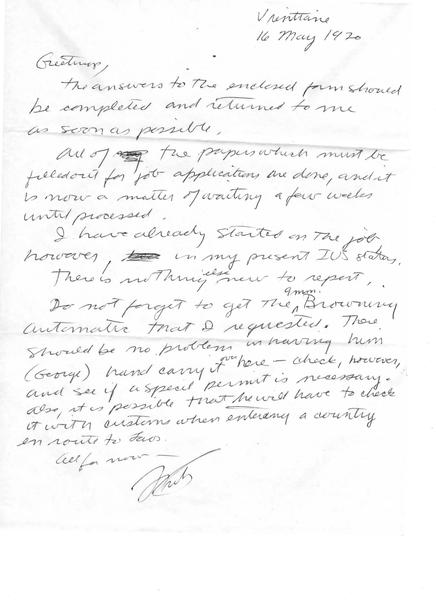 Vrinttane
16 May 1970
Greetings,
the answers to the enclosed form should
be completed and returned to me
as soon as possible.
All of the papers which must be
filled out for job applications are done, and it
is now a matter of waiting a few weeks
until processed.
I have already started on the job
however, in my present IVS status.
There is nothing else new to report.
Do not forget to get the 9mm. Browning
automatic that I requested. There
should be no problem in having him
(George) hand carry it over here – check, however,
and see if a special permit is necessary.
also, it is possible that he will have to check
it with customs when entering a country
en route to Laos.
All for now –